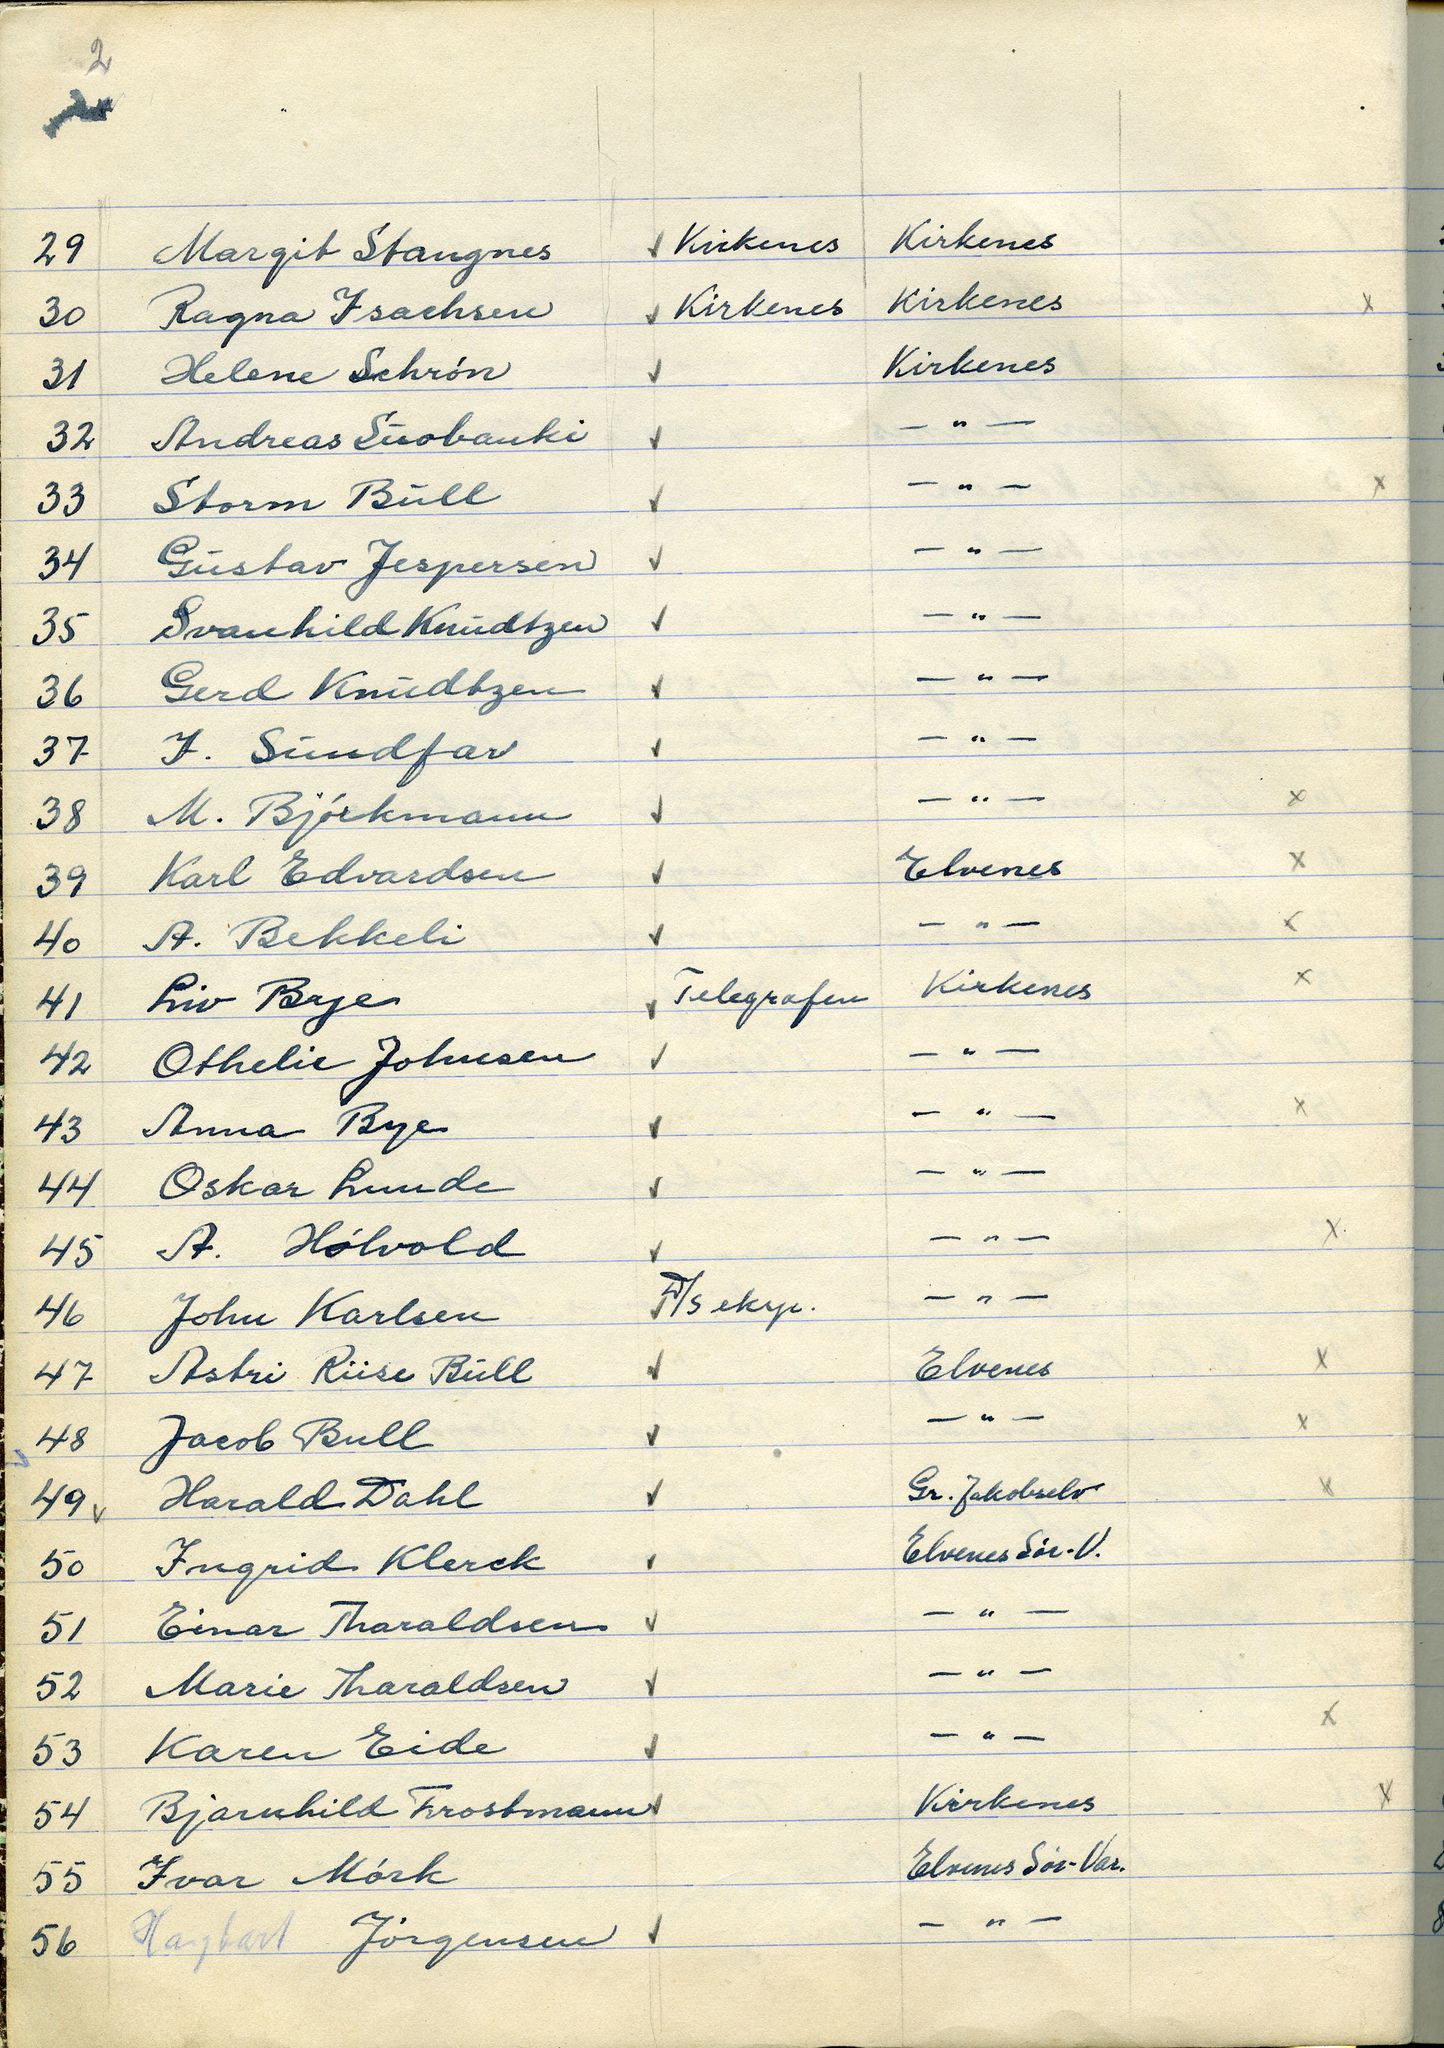 2
29 Margit Stangnes ✓ Kirkenes Kirkenes
30 Ragna Isachsen ✓ Kirkenes Kirkenes x
31 Helene Schrön ✓ Kirkenes
32 Andreas Suobanki ✓ — " —
33 Storm Bull ✓ — " — x
34 Gustav Jespersen ✓ — " —
35 Svanhild Knudtzen ✓ — " —
36 Gerd Knudtzen ✓ — " —
37 I. Sundfær ✓ — " —
38 M. Björkmann ✓ — " — x
39 Karl Edvardsen ✓ Elvenes x
40 A. Bekkeli ✓ — " — x
41 Liv Brye ✓ Telegrafen Kirkenes x
42 Othelie Johnsen ✓ — " —
43 Anna Bye ✓ — " — x
44 Oskar Lunde ✓ — " —
45 A. Hólvold ✓ — " — x
46 John Karlsen ✓ A/S eksp. — " —
47 Astri Riise Bull ✓ Elvenes x
48 Jacob Bull ✓ — " — x
49 ✓ Harald Dahl ✓ Gr. Jakobselv x
50 Ingrid Klerck ✓ Elvenes Sör-V.
51 Einar Tharaldsen ✓ — " —
52 Marie Tharaldsen ✓ — " —
53 Karen Eide ✓ — " — x
54 Bjarnhild Frostmann ✓ Kirkenes x
55 Ivar Mórk Elvenes Sör-Var.
56 Hagbart Jörgensen ✓ — " —